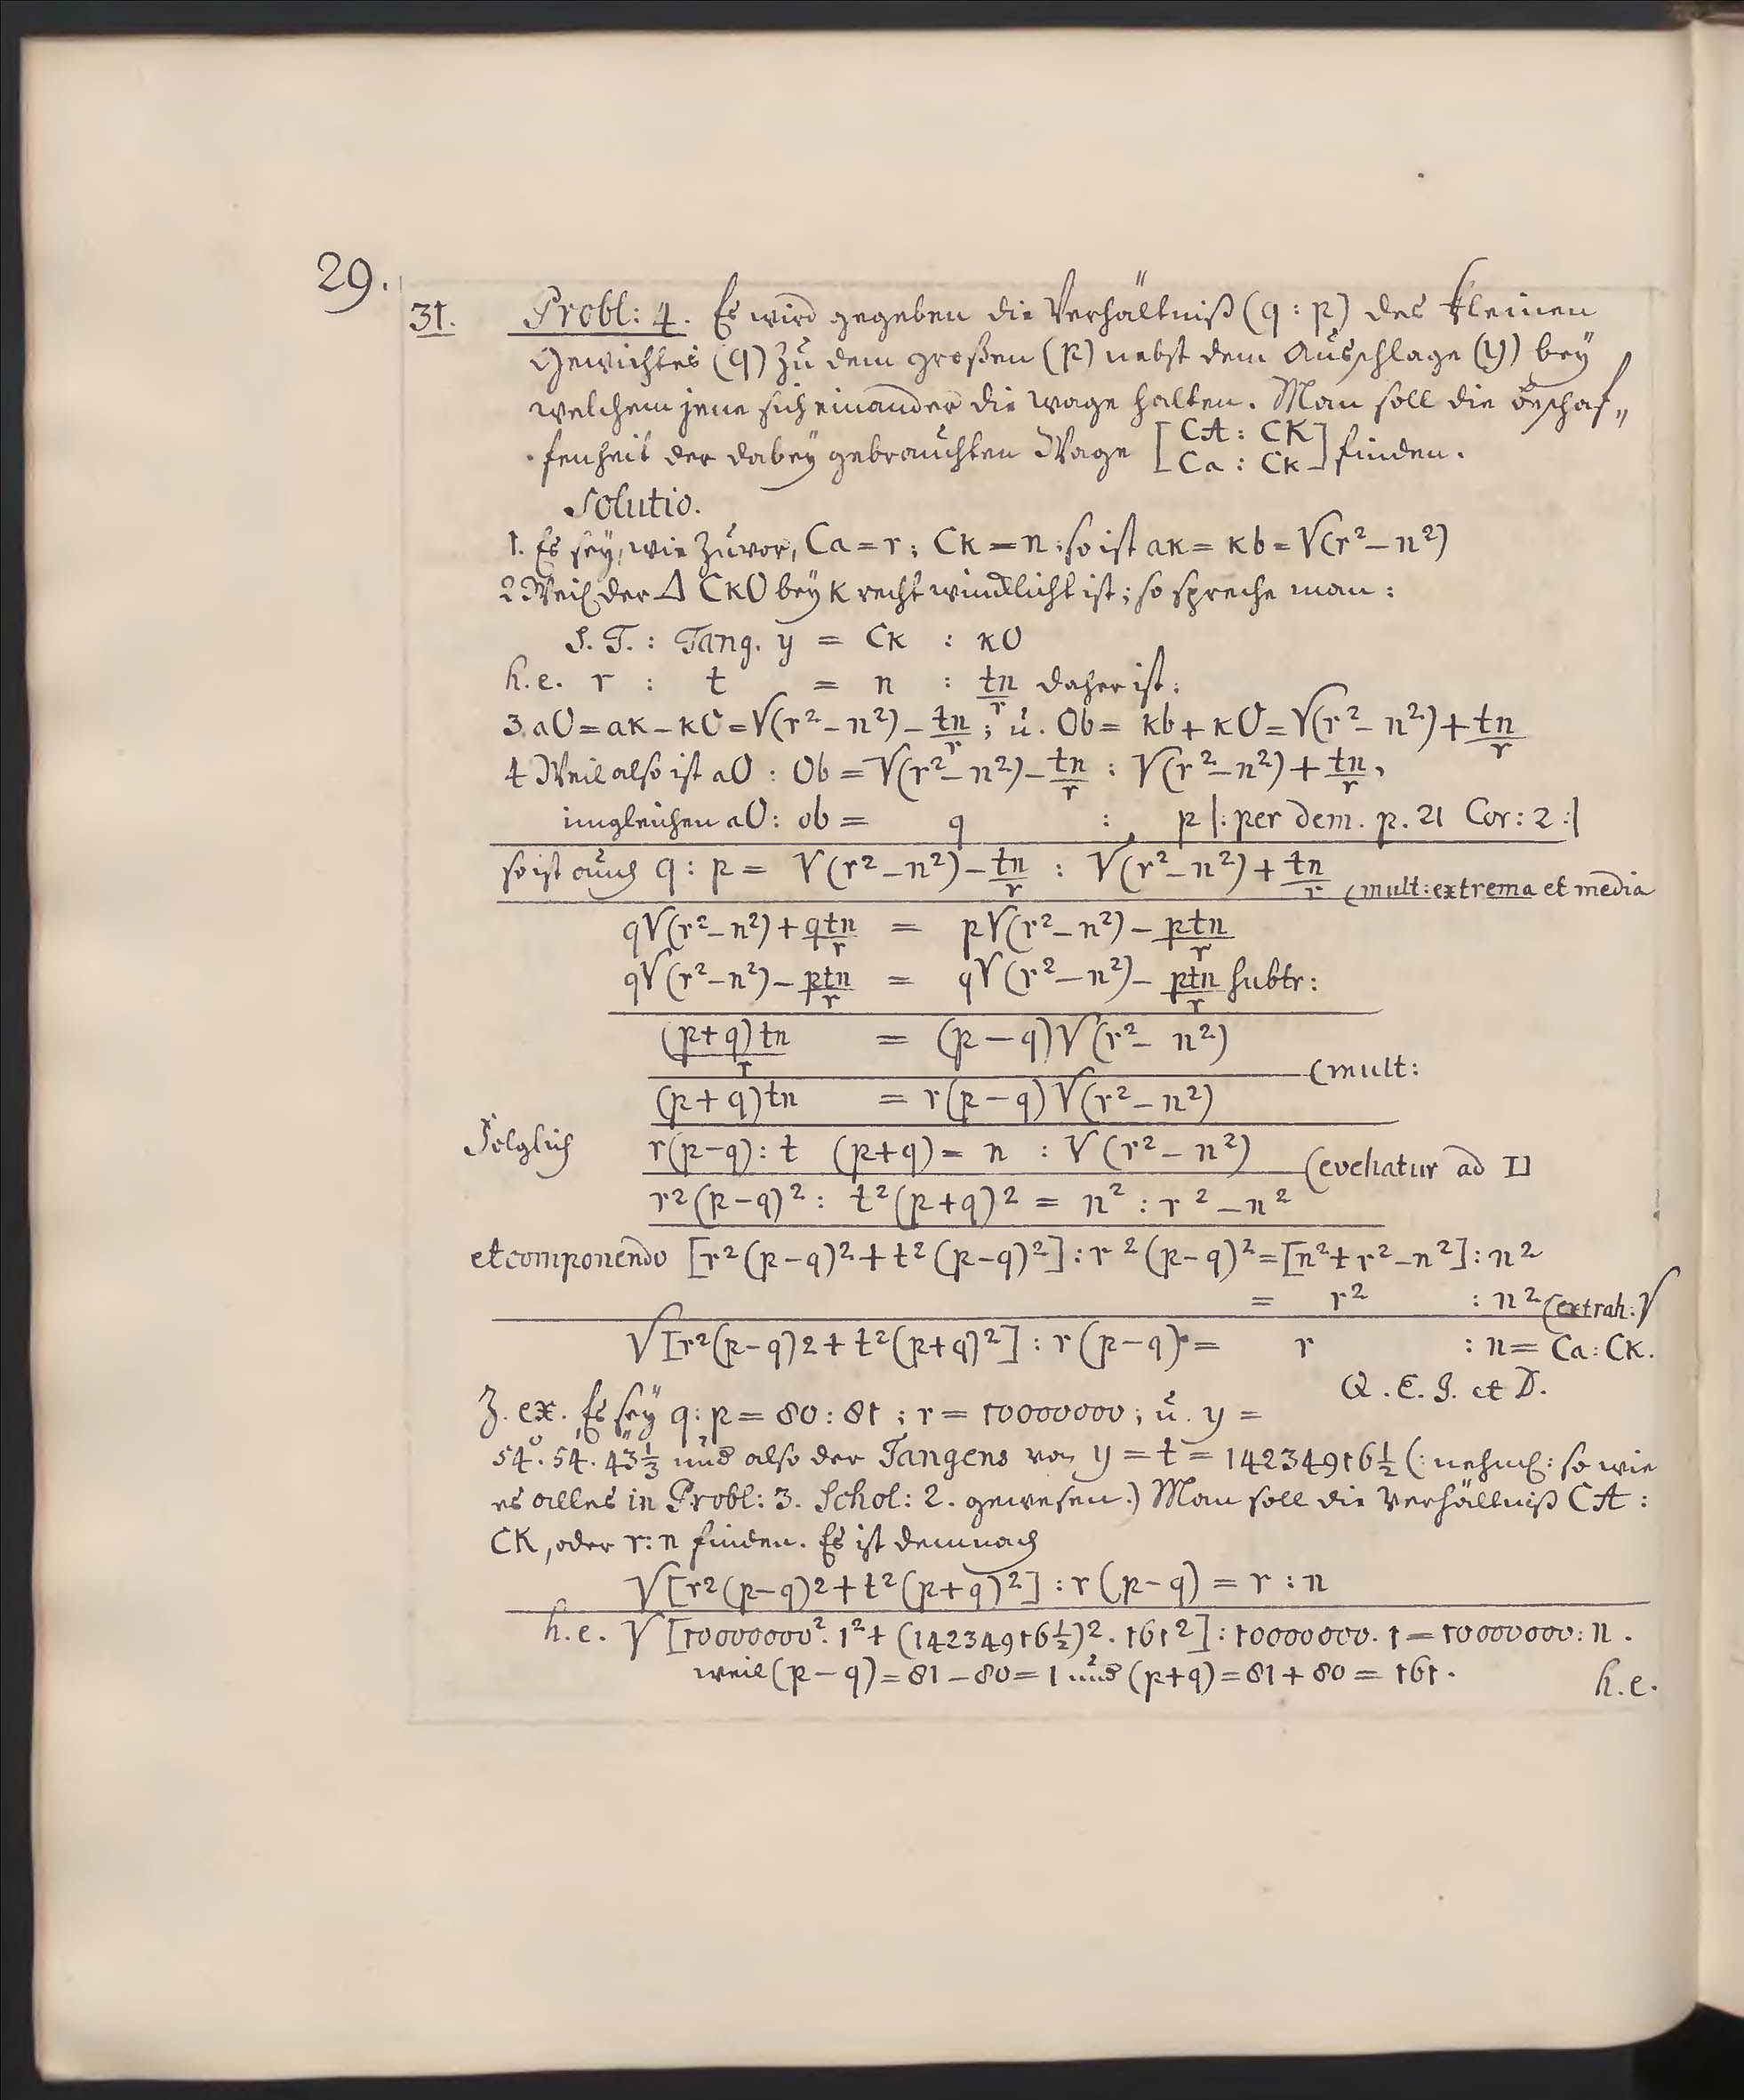 29.
31. Probl: 4. Es wird gegeben die Verhältniß (q : p) des kleinen
Gewichtes (q) zu dem großen (p) nebst dem Ausschlage (y) bey
welchem jene sich einander die wage halten. Man soll die beschaf„
fenheit der dabey gebrauchten Wage [CA : CK / Ca : Cκ] finden.
Solutio.
1. Es sey, wie zuvor, Ca = r; Cκ = n; so ist aκ = κb = √(r² – n²)
2 Weil der Δ CκO bey κ recht wincklicht ist; so spreche man:
S. T. : Tang. y = Cκ : κO
h. e. r : t = n : tn/r daher ist:
3. aO = aκ – κO = √(r² – n²) – tn/r ; u. Ob = κb + κO = √(r² – n²) + tn/r
4 Weil also ist aO : Ob = √(r² – n²) – tn/r : √(r² – n²) + tn/r,
imgleichen aO : ob = q : p |: per dem. p. 21 Cor: 2 :|
so ist auch q : p = √(r² – n²) – tn/r : √(r² – n²) + tn/r (mult: extrema et media
q√(r² – n²) + qtn/r = p√(r² – n²) – ptn/r
q√(r² – n²) – ptn/r = q√(r² – n²) – ptn/r subtr:
(p+q)tn/r = (p – q)√(r² – n²)
(mult:
(p+q)tn = r(p – q)√(r² – n²)
Folglich r(p–q) : t (p+q) = n : √(r² – n²)
(evehatur ad □
r²(p–q)² : t²(p+q)² = n² : r² – n²
et componendo [r²(p–q)² + t²(p–q)²] : r²(p–q)² = [n² + r² – n²] : n²
= r² : n² (extrah: √
√[r²(p–q)2 + t²(p+q)²] : r(p–q) = r : n = Ca : Cκ.
Q. E. I. et D.
Z. ex. Es sey q : p = 80 : 81 ; r = 10000000 ; u. y =
54°. 54'. 43⅓'' und also der Tangens von y = t = 14234916½ (: nehml: so wie
es alles in Probl: 3. Schol: 2. gewesen.) Man soll die Verhältniß CA :
CK, oder r : n finden. Es ist demnach
√[r²(p–q)2 + t²(p+q)²] : r(p–q) = r : n
h. e. √[10000000². 1² + (14234916½)². 161²] : 10000000. 1 = 10000000 : n.
weil (p – q) = 81 – 80 = 1 und (p+q) = 81 + 80 = 161.
h. e.